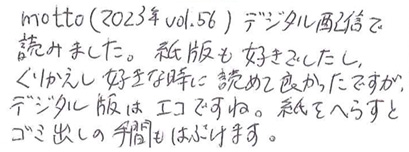 motto(2023年vol.56)デジタル配信で
読みました。紙版も好きでしたし、
くりかえし好きな時に読めて良かったですが、
デジタル版はエコですね。紙をへらすと
ゴミ出しの手間もはぶけます。